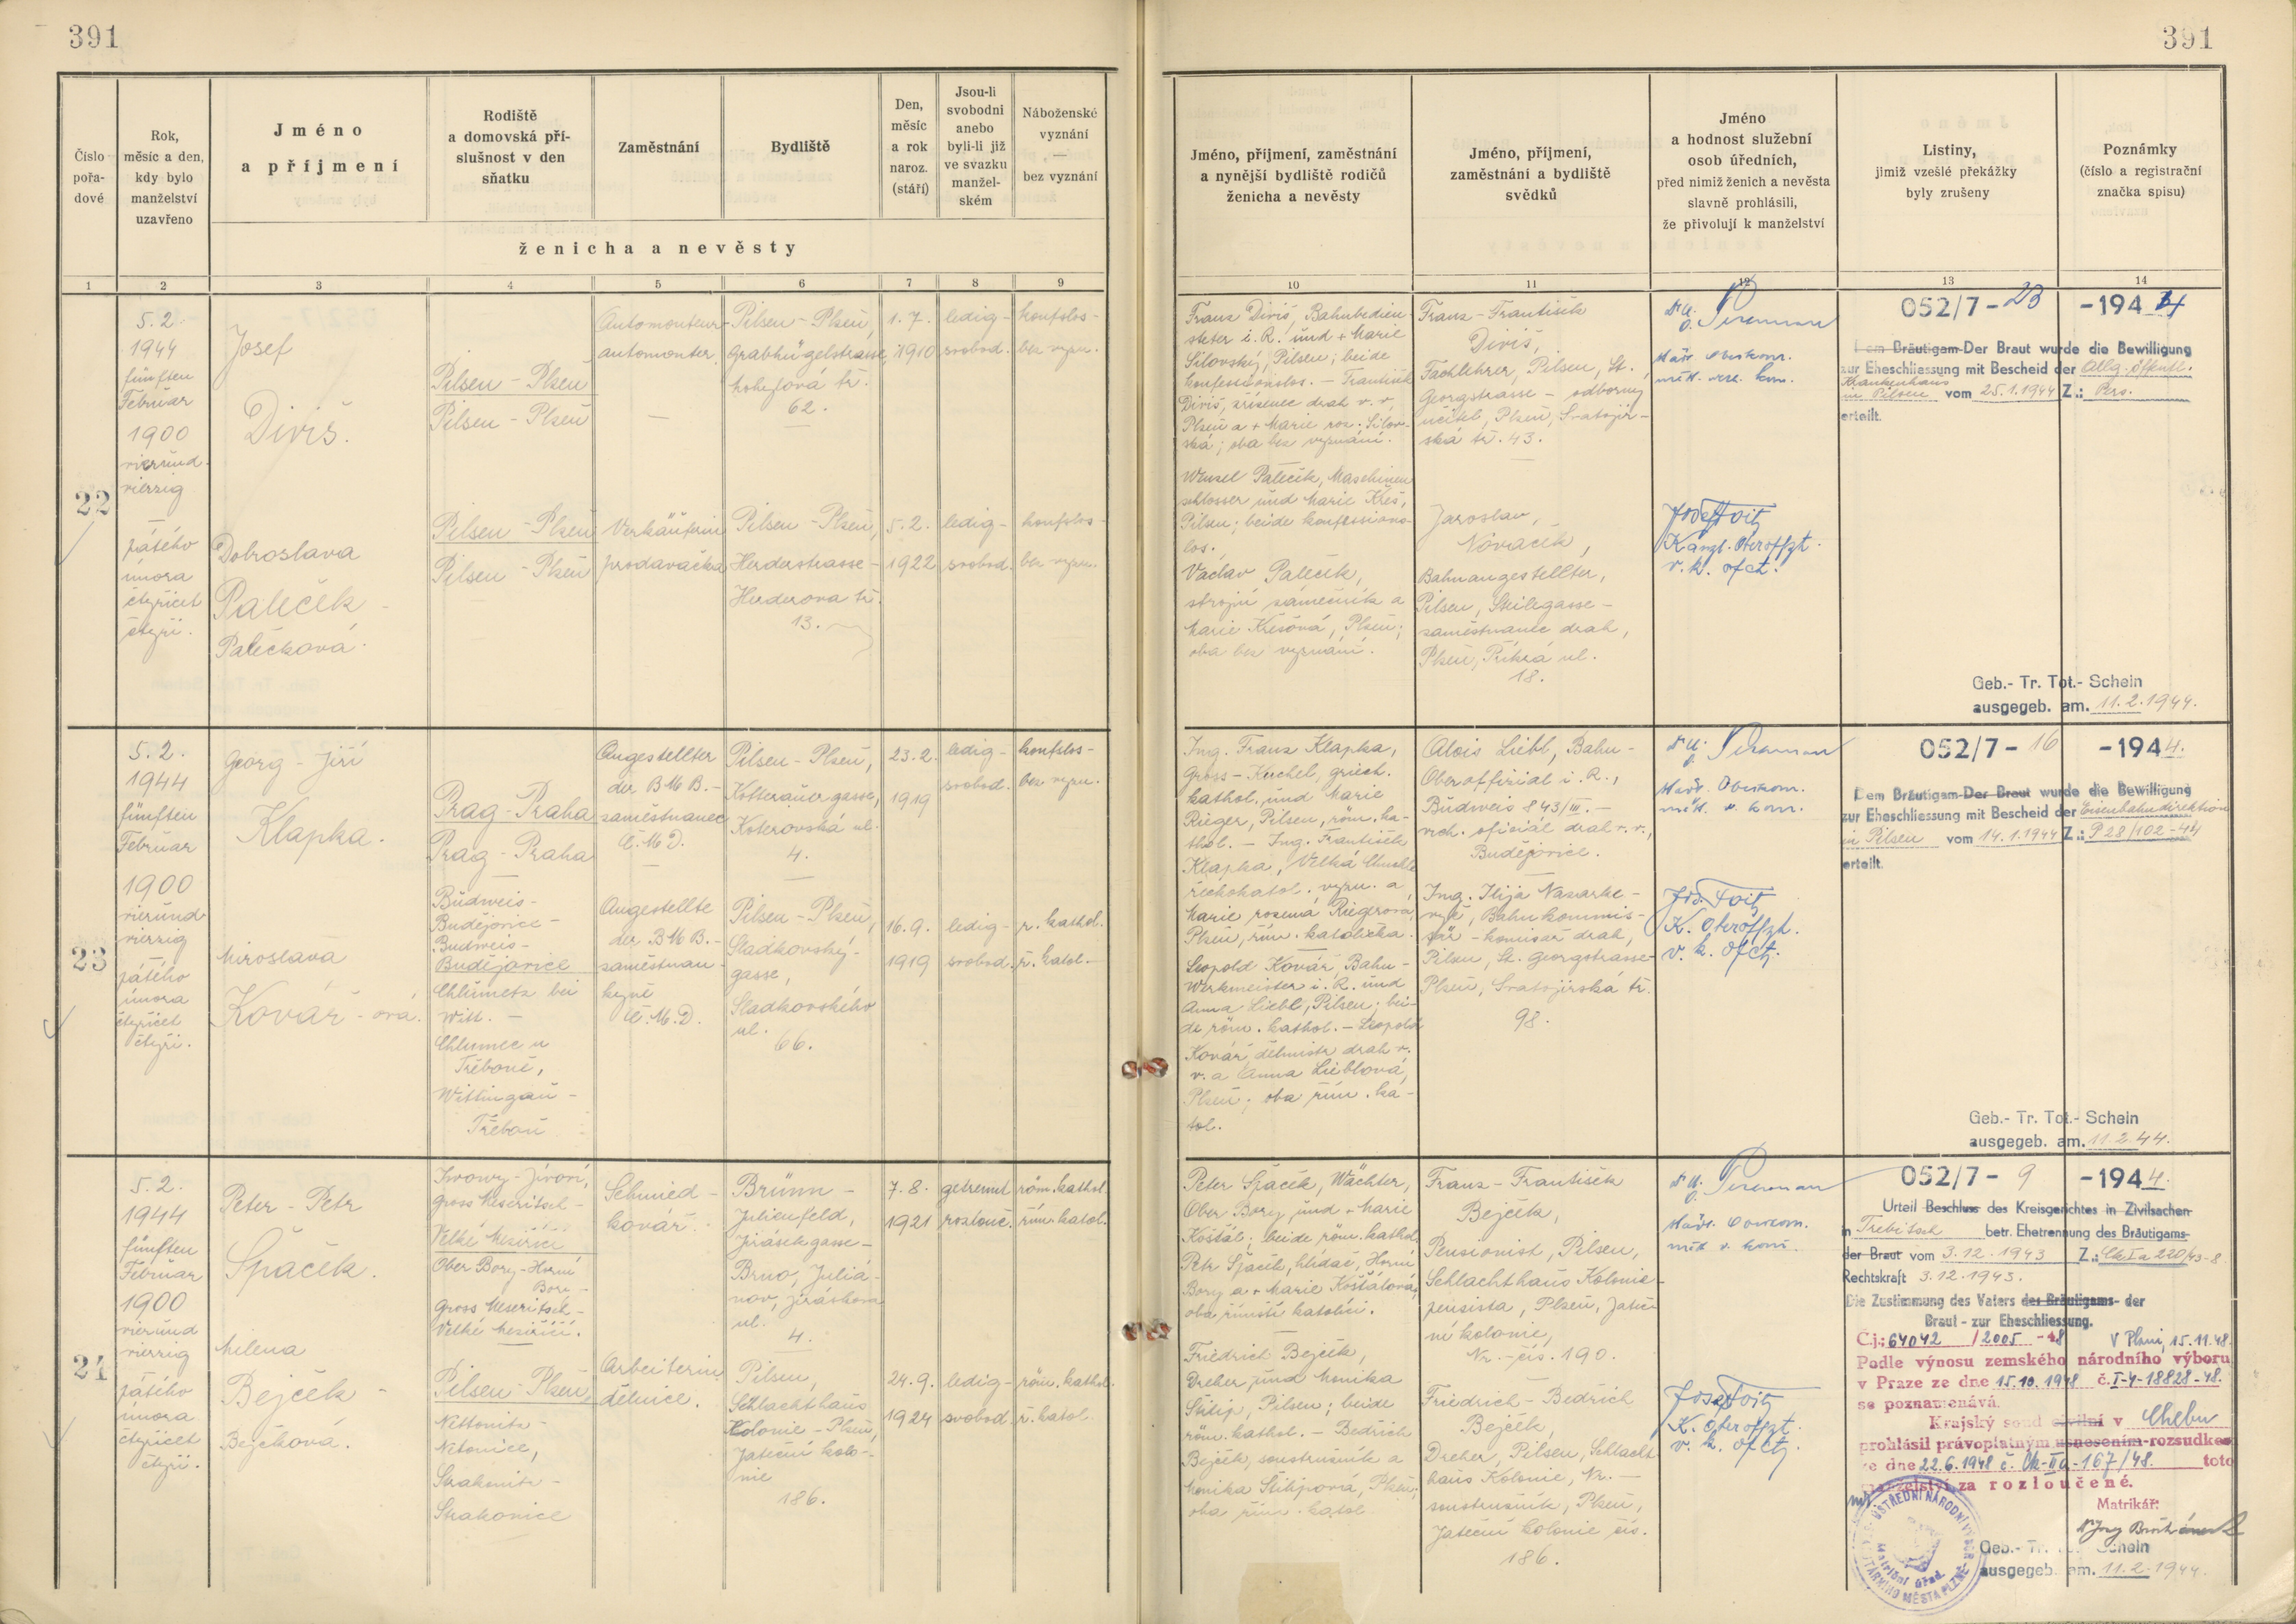 391
391
Číslo pořa-dové
Rok, měsíc a den, kdy bylo manželství uzavřeno
Jméno a příjmení
Rodiště a domovská pří-slušnost v den sňatku
Zaměstnání
Bydliště
Den, měsíc a rok naroz. (stáří)
Jsou-li svobodni anebo byli-li již ve svazku manžel-ském
Náboženské vyznání — bez vyznání
ženicha a nevěsty
Jméno, příjmení, zaměstnání a nynější bydliště rodičů ženicha a nevěsty
Jméno, příjmení, zaměstnání a bydliště svědků
Jméno a hodnost služební osob úředních, před nimiž ženich a nevěsta slavně prohlásili, že přivolují k manželství
Listiny, jimiž vzešlé překážky byly zrušeny
Poznámky (číslo a registrační značka spisu)
1 2 3 4 5 6 7 8 9 10 11 12 13 14
22
5.2.
1944
fünften
Februar
1900
vierund-
vierzig
—
pátého
února
čtyřicet
čtyři.
Josef
Diviš.
Dobroslava
Paleček -
Palečková.
Pilsen - Plzeň
Pilsen - Plzeň
Pilsen - Plzeň
Pilsen - Plzeň
Automonteur -
automonter
Verkäuferin
prodavačka
Pilsen - Plzeň,
Grabhügelstrasse
62.
Pilsen - Plzeň,
Herderstrasse -
Herderova tř.
13.
1.7.
1910
5.2.
1922
ledig -
svobod.
ledig -
svobod.
konfslos -
bez vyzn.
konfslos -
bez vyzn.
Franz Diviš, Bahnbedien-
steter i. R. und + Marie
Silovský, Pilsen; beide
konfessionslos. — František
Diviš, zřízenec drah v. v.,
Plzeň a + Marie roz. Silov-
ská; oba bez vyznání.
Wenzel Paleček, Maschinen
schlosser und Marie Kreš,
Pilsen; beide konfessions-
los.
Václav Paleček,
strojní zámečník a
Marie Krešová, Plzeň;
oba bez vyznání.
Franz - František
Diviš,
Fachlehrer, Pilsen, St.
Georgstrasse - odborný
učitel, Plzeň, Svatojir-
ská tř. 43.
Jaroslav
Nováček,
Bahnangestellter,
Pilsen, Steilegasse -
zaměstnanec drah,
Plzeň, Příkrá ul.
18.
Josef Voit
Kanzl. Oberoffzt.
v. k. ofct.
052/7-23 -1944
Dem Bräutigam-Der Braut wurde die Bewilligung
zur Eheschliessung mit Bescheid der Allg. öffentl.
Krankenhaus
in Pilsen vom 25.1.1944 Z.: Pers.
erteilt.
Geb.- Tr. Tot.- Schein
ausgegeb. am. 11.2.1944.
23
5.2.
1944
fünften
Februar
1900
vierund-
vierzig
—
pátého
února
čtyřicet
čtyři.
Georg - Jiří
Klapka.
Miroslava
Kovář - ová.
Prag - Praha
Prag - Praha
Budweis -
Budějovice -
Budweis -
Budějovice
Chlumetz bei
Witt. -
Chlumec u
Třeboně,
Wittingau -
Třeboň
Angestellter
der BMB. -
zaměstnanec
Č.M.D.
Angestellte
der BMB. -
zaměstnan-
kyně
Č.M.D.
Pilsen - Plzeň,
Kotterauergasse,
Koterovská ul.
4.
Pilsen - Plzeň,
Sladkovský-
gasse,
Sladkovského
ul.
66.
23.2.
1919
16.9.
1919
ledig -
svobod.
ledig -
svobod.
konfslos -
bez vyzn.
r. kathol.
ř. katol.
Ing. Franz Klapka,
Gross-Kuchel, griech.
kathol. und Marie
Rieger, Pilsen, röm. ka-
thol. — Ing. František
Klapka, Velká Chuchle
řeckokatol. vyzn. a
Marie rozená Riegrová,
Plzeň, řím. katolička.
Leopold Kovář, Bahn-
Werkmeister i. R. und
Anna Liebl, Pilsen; bei-
de röm. kathol. — Leopold
Kovář, dílmistr drah v.
v. a Anna Lieblová,
Plzeň; oba řím. ka-
tol.
Alois Liebl, Bahn-
Oberoffizial i. R.,
Budweis 843/III. —
vrch. oficiál drah v. v.,
Budějovice.
Ing. Ilija Nazarke-
vyč, Bahnkommis-
sär - komisař drah,
Pilsen, St. Georgstrasse -
Plzeň, Svatojirská tř.
98.
Jos. Voit
K. Oberoffzt.
v. k. ofct.
052/7-16 -1944.
Dem Bräutigam-Der Braut wurde die Bewilligung
zur Eheschliessung mit Bescheid der Eisenbahndirektion
in Pilsen vom 14.1.1944 Z.: P 28/102-44
erteilt.
Geb.- Tr. Tot.- Schein
ausgegeb. am. 11.2.44.
24
5.2.
1944
fünften
Februar
1900
vierund
vierzig
—
pátého
února
čtyřicet
čtyři.
Peter - Petr
Špaček.
Milena
Bejček -
Bejčková.
Gross Meseritsch -
Velké Meziříčí
Ober Bory - Horní
Bory -
Gross Meseritsch -
Velké Meziříčí.
Pilsen - Plzeň,
Nettonitz -
Netonice,
Strakonitz -
Strakonice
Schmied -
kovář.
Arbeiterin
dělnice.
Brünn -
Julienfeld,
Jirásekgasse -
Brno, Juliá-
nov, Jiráskova
ul.
4.
Pilsen,
Schlachthaus
Kolonie - Plzeň,
Jateční kolo-
nie
186.
7.8.
1921
24.9.
1924
getrennt
rozlouč.
ledig -
svobod.
röm. kathol.
řím. katol.
röm. kathol.
ř. katol.
Peter Špaček, Wächter,
Ober Bory und + Marie
Košťál; beide röm. kathol.
Petr Špaček, hlídač, Horní
Bory a + Marie Košťálová,
oba římští katolíci.
Friedrich Bejček,
Dreher und Monika
Štilip, Pilsen; beide
röm. kathol. — Bedřich
Bejček, soustružník a
Monika Štilipová, Plzeň;
oba řím. katol.
Franz - František
Bejček,
Pensionist, Pilsen,
Schlachthaus Kolonie -
pensista, Plzeň, Jateč-
ní kolonie,
Nr. - čís. 190.
Friedrich - Bedřich
Bejček,
Dreher, Pilsen, Schlacht
haus Kolonie, Nr. —
soustružník, Plzeň,
Jateční kolonie čís.
186.
Josef Voit
K. Oberoffzt.
v. k. ofct.
052/7-9 -1944.
Urteil Beschluss des Kreisgerichtes in Zivilsachen
in Trebitsch betr. Ehetrennung des Bräutigams-
der Braut vom 3.12.1943 Z.: Ck I a 220/43-8
Rechtskraft 3.12.1943.
Die Zustimmung des Vaters des Bräutigams- der
Braut - zur Eheschliessung.
Č.j.: 64042 / 2005 -48 V Plzni, 15.11.48.
Podle výnosu zemského národního výboru
v Praze ze dne 15.10.1948 č. I-4-18828-48.
se poznamenává.
Krajský soud civilní v Chebu
prohlásil právoplatným usnesením-rozsudkem
ze dne 22.6.1948 č. Ck-IIa-167/48 toto
manželství za rozloučené.
Matrikář:
ÚSTŘEDNÍ NÁRODNÍ VÝBOR
Matriční úřad.
MĚSTA PLZNĚ
Geb.- Tr. Schein
ausgegeb. am. 11.2.1944.